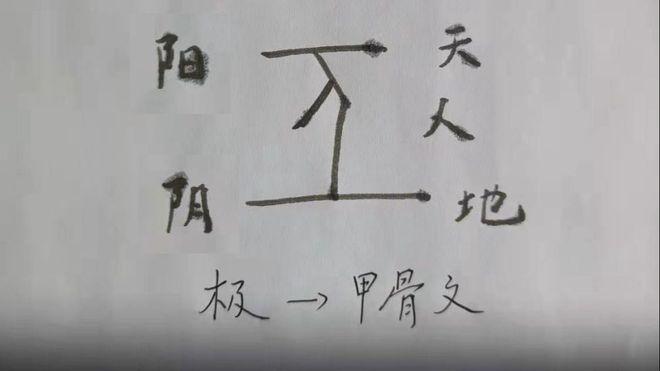 阳 天
人
阴 地
极→甲骨文